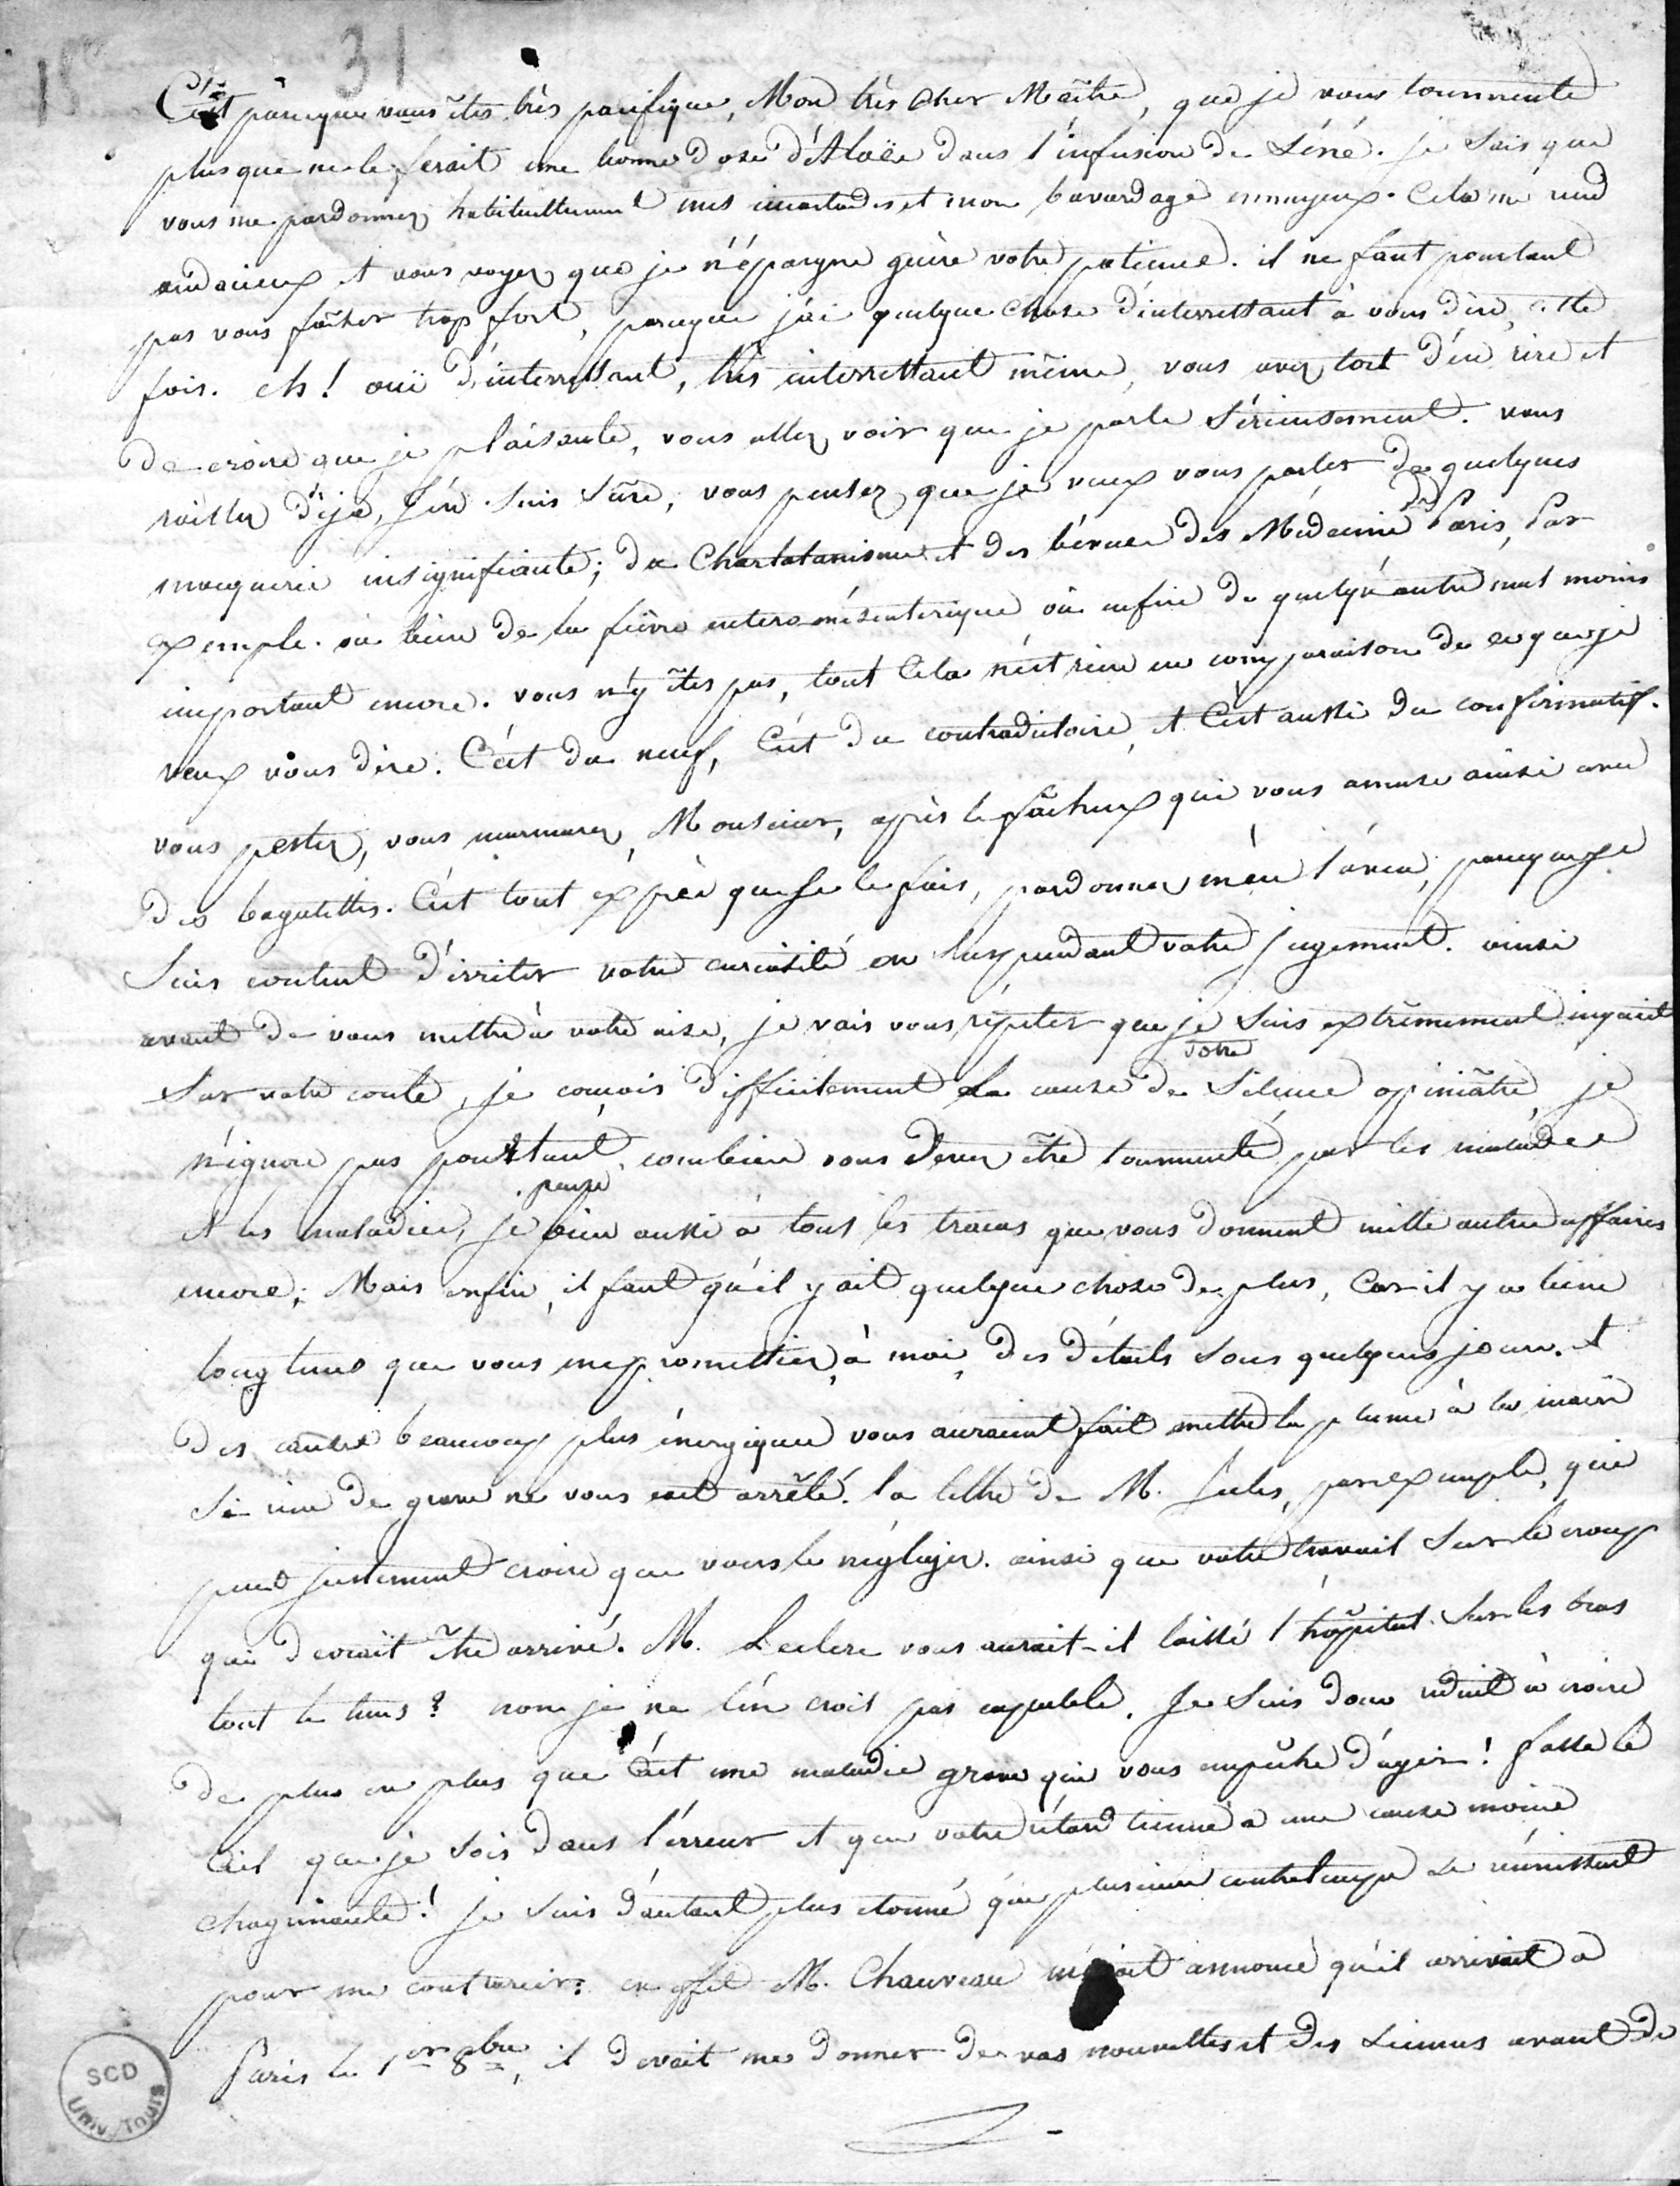 18 31
C'est parceque vous êtes très pacifique, Mon très cher Maître, que je vous tourmente
plus que ne le ferait une bonne dose d'Aloës dans l'infusion de Séné. je sais que
vous me pardonnez habituellement mes incartades et mon bavardage ennuyeux. Cela me rend
audacieux et vous voyez que je n'épargne guère votre patience. il ne faut pourtant
pas vous fâcher trop fort, parceque j'ai quelque chose d'interressant à vous dire, cette
fois. eh! oui d'interressant, très interressant même, vous avez tort d'en rire et
de croire que je plaisante, vous allez voir que je parle sérieusement. vous
raillez déja, j'en suis sûre, vous pensez que je veux vous parler de quelques
moquerie insignifiante; du Charlatanisme et des bévues des Médecins de Paris, Par
exemple. ou bien de la fièvre entero-mésenterique ou enfin de quelqu'autre mal moins
important encore. vous n'y êtes pas, tout cela n'est rien en comparaison de ce que je
veux vous dire. C'est du neuf, C'est du contradictoire, et C'est aussi du confirmatif.
vous pestez, vous murmurez, Monsieur, après le fâcheux qui vous amuse ainsi avec
des bagatelles. C'est tout exprès que je le fais, pardonnez m'en l'aveu, parceque je
suis content d'irriter votre curiosité en suspendant votre jugement. ainsi
avant de vous mettre à votre aise, je vais vous répéter que je suis extrêmement inquiet
sur votre conte, je conçois difficilement la cause de votre silence opiniâtre je
n'ignore pas pourtant, combien vous devez être tourmenté par les malades
et les maladies, je pense bien aussi à tous les tracas que vous donnent mille autre affaires
encore; Mais enfin, il faut qu'il y ait quelque chose de plus, Car il y a bien
longtems que vous me promettiez, à moi, des détails sous quelques jours. et
des causes beaucoup plus énergiques vous auraient fait mettre la plume à la main
si rien de grave ne vous eut arrêté. la lettre de M. Jules, par exemple, qui
peut justement croire que vous le négligez. ainsi que votre travail sur le croup
qui devrait être arrivé. M. Leclerc vous aurait-il laissé l'hôpital sur les bras
tout le tems? non je ne l'en crois pas capable. Je suis donc réduit à croire
de plus en plus que C'est une maladie grave qui vous empêche d'agir! fasse le
Ciel que je sois dans l'erreur et que votre retard tienne à une cause moins
chagrinante! je suis d'autant plus étonné que plusieurs contretemps se réunissent
pour me contrarier: en effet M. Chauveau m'avait annoncé qu'il arrivait à
Paris le 1er 8bre, il devait me donner de vos nouvelles et des siennes avant de
SCD
Univ. Tours